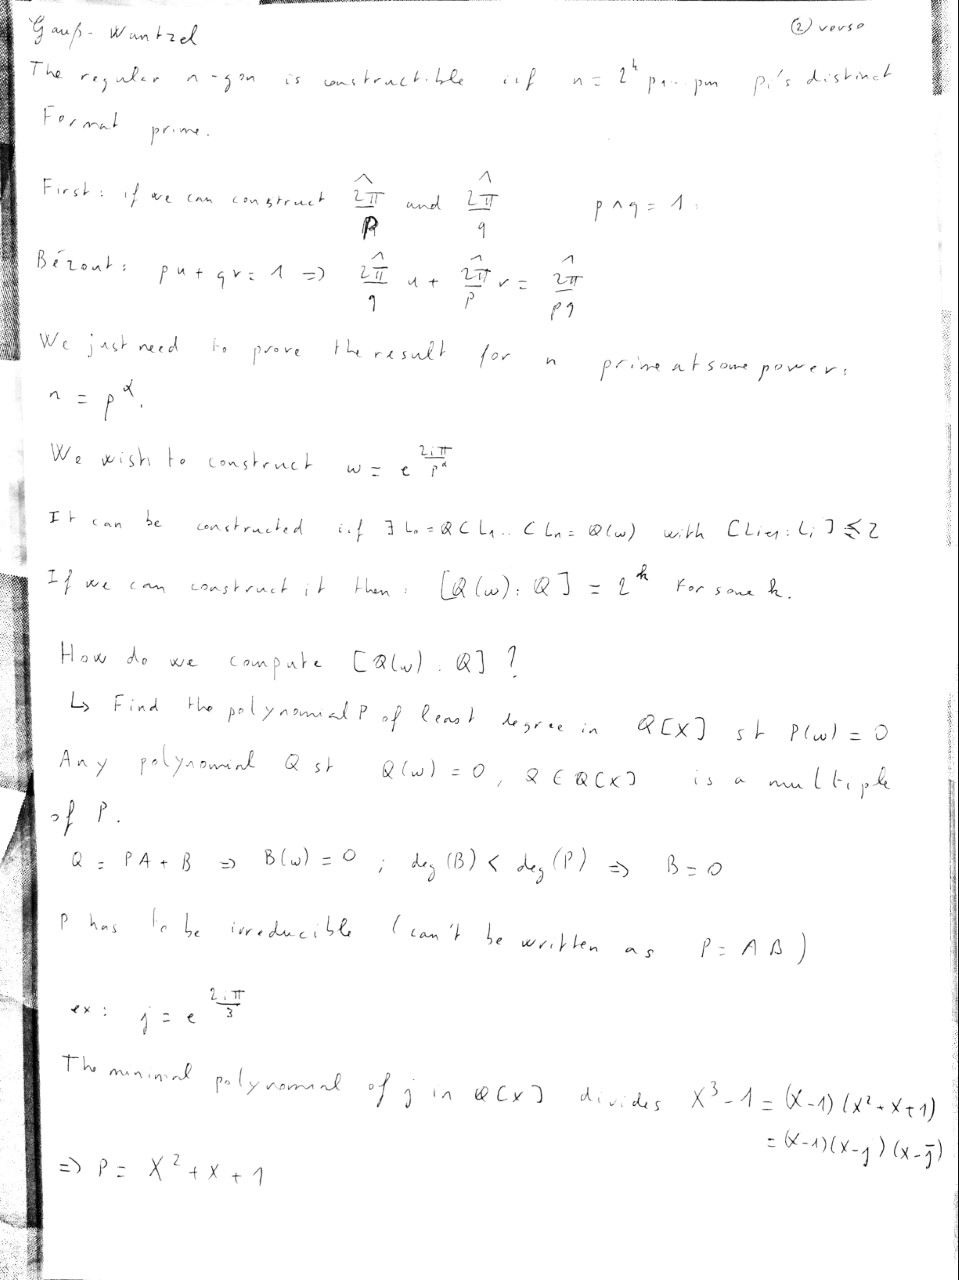 Gauß-Wantzel
② verso
The regular n-gon is constructible iif n = 2^k p₁...pm pi's distinct
Fermat prime.
First: if we can construct \widehat{2π/p} and \widehat{2π/q} p∧q = 1.
Bézout: pu + qv = 1 => \widehat{2π/q} u + \widehat{2π/p} v = \widehat{2π/pq}
We just need to prove the result for n prime at some power:
n = p^α.
We wish to construct ω = e^{2iπ/p^α}
It can be constructed iif ∃ L₀ = Q ⊂ L₁.. ⊂ Ln = Q(ω) with [Li+1 : Li] ⩽ 2
If we can construct it then: [Q(ω) : Q] = 2^k for some k.
How do we compute [Q(ω) : Q] ?
↳ Find the polynomial P of least degree in Q[X] st P(ω) = 0
Any polynomial Q st Q(ω) = 0, Q ∈ Q[X] is a multiple
of P.
Q = PA + B => B(ω) = 0 ; deg(B) < deg(P) => B = 0
P has to be irreducible (can't be written as P = AB)
ex: j = e^{2iπ/3}
The minimal polynomial of j in Q[X] divides X³ - 1 = (X-1)(X² + X + 1)
= (X-1)(X-j)(X-j̄)
=> P = X² + X + 1